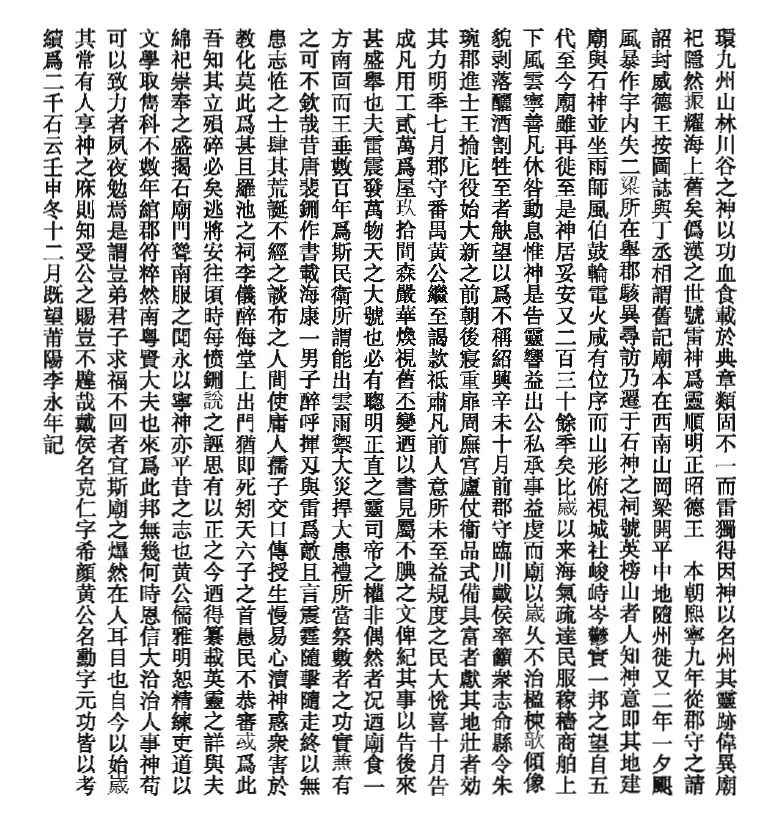 環九州山林川谷之神以功血食載於典章類固不一而雷獨得因神以名州其靈跡偉異廟
祀隱然振耀海上舊矣僞漢之世號雷神爲靈順明正昭德王　本朝熙寧九年從郡守之請
詔封威德王按圖誌與丁丞相謂舊記廟本在西南山岡梁開平中地隨州徙又二年一夕颶
風暴作宇内失二梁所在舉郡駭異尋訪乃遷于石神之祠號英榜山者人知神意即其地建
廟與石神並坐雨師風伯鼓輪電火咸有位序而山形俯視城社峻峙岑鬱實一邦之望自五
代至今廟雖再徙至是神居妥安又二百三十餘季矣比歲以来海氣疏達民服稼穡商舶上
下風雲寧善凡休咎動息惟神是告靈響益出公私承事益虔而廟以歲久不治楹棟欹傾像
貌剥落釃酒割牲至者觖望以爲不稱紹興辛未十月前郡守臨川戴侯率籲衆志命縣令朱
琬郡進士王掄庀役始大新之前朝後寢重扉周廡宫廬仗衞品式備具富者獻其地壯者効
其力明季七月郡守番禺黄公繼至謁款祗肅凡前人意所未至益規度之民大悅喜十月告
成凡用工貳萬爲屋玖拾間森嚴華煥視舊丕變迺以書見屬不腆之文俾紀其事以告後來
甚盛舉也夫雷震發萬物天之大號也必有聰明正直之靈司帝之權非偶然者况迺廟食一
方南面而王垂數百年爲斯民衛所謂能出雲雨禦大災捍大患禮所當祭數者之功實䕌有
之可不欽哉昔唐裴鉶作書載海康一男子醉呼揮刄與雷爲敵且言震霆隨擊隨走終以無
患志恠之士肆其荒誕不經之談布之人間使庸人孺子交口傳授生慢易心瀆神惑衆害於
教化莫此爲甚且羅池之祠李儀醉侮堂上出門猶即死矧天六子之首愚民不恭審或爲此
吾知其立殞碎必矣逃將安往頃時每憤鉶說之誣思有以正之今迺得纂載英靈之詳與夫
綿祀崇奉之盛揭石廟門聳南服之聞永以寧神亦平昔之志也黄公儒雅明恕精練吏道以
文學取雋科不數年綰郡符粹然南粤賢大夫也來爲此邦無幾何時恩信大洽治人事神苟
可以致力者夙夜勉焉是謂豈弟君子求福不回者宜斯廟之爗然在人耳目也自今以始歲
其常有人享神之庥則知受公之賜豈不韙哉戴侯名克仁字希顔黄公名勳字元功皆以考
績爲二千石云壬申冬十二月既望莆陽李永年記